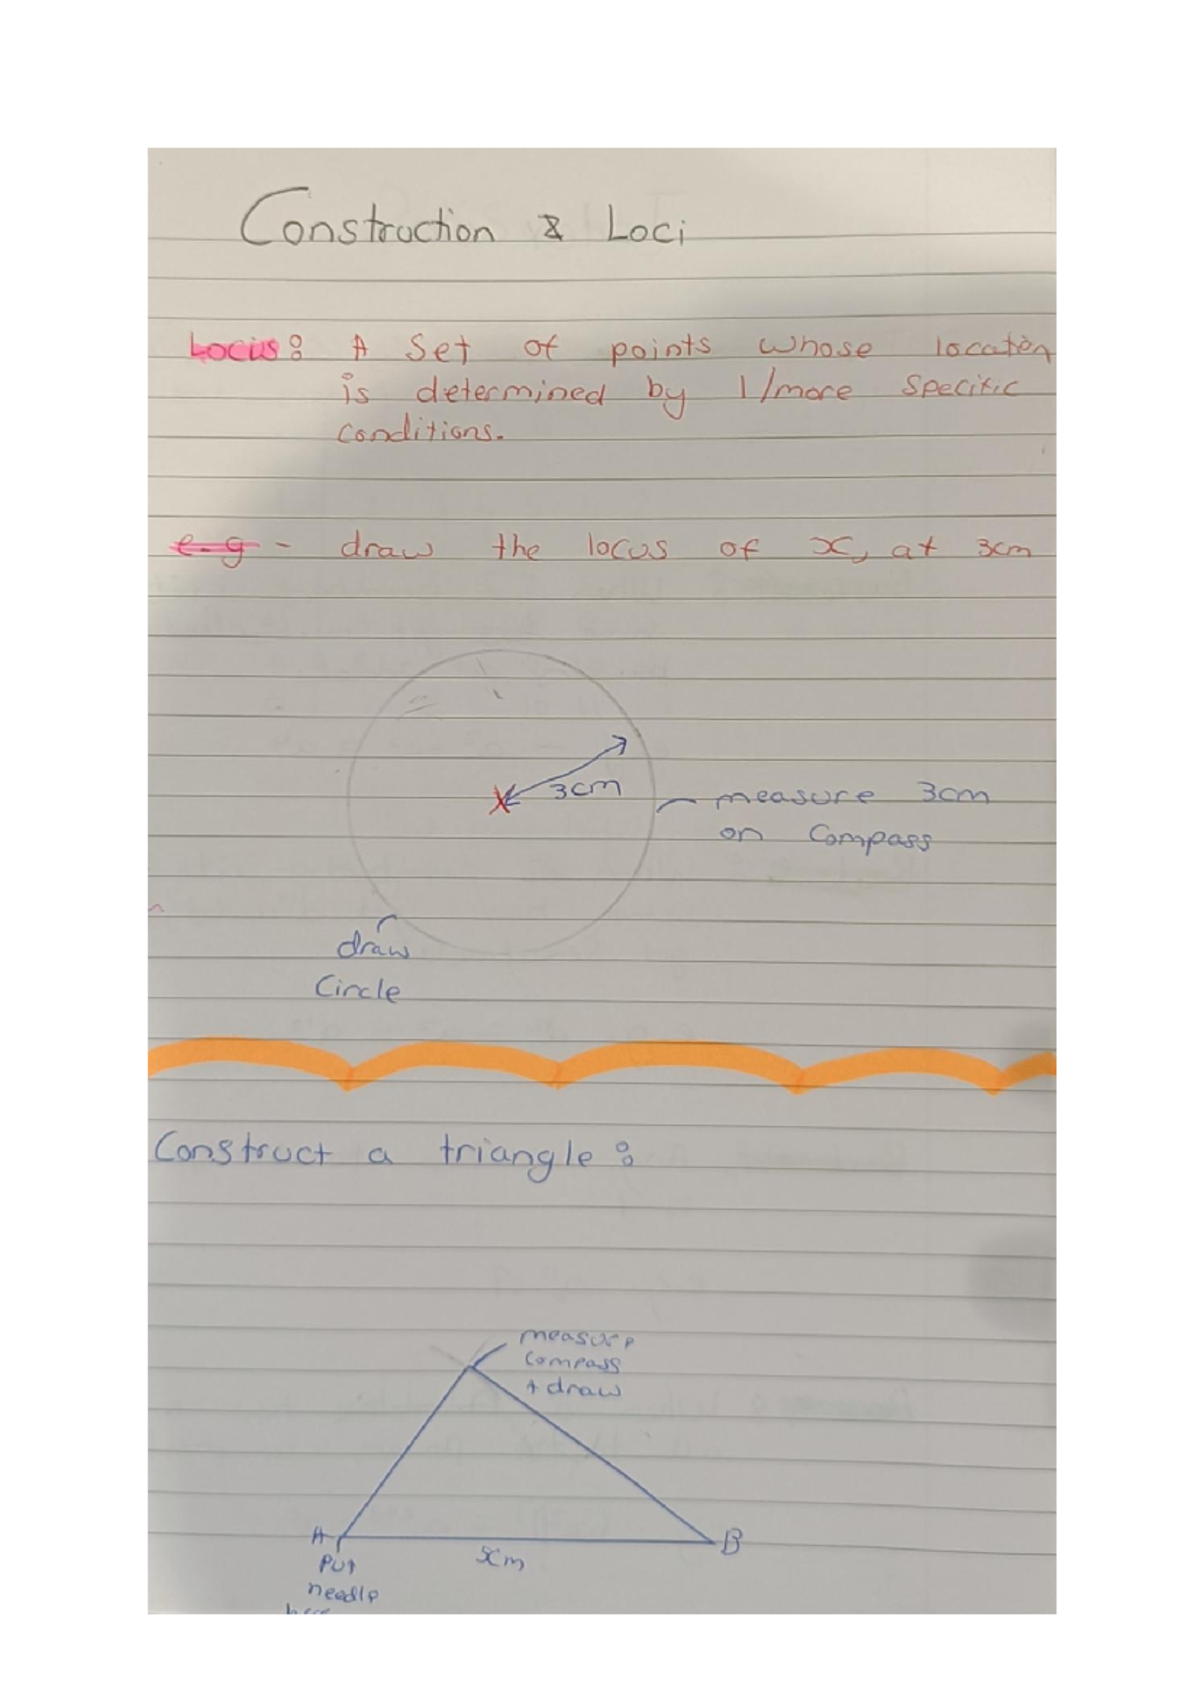 Construction & Loci
Locus: A Set of points whose location
is determined by 1/more Specific
conditions.
e.g - draw the locus of x, at 3cm
3cm
measure 3cm
on Compass
draw
Circle
Construct a triangle:
measure
compass
+ draw
A
B
Put
needle
here